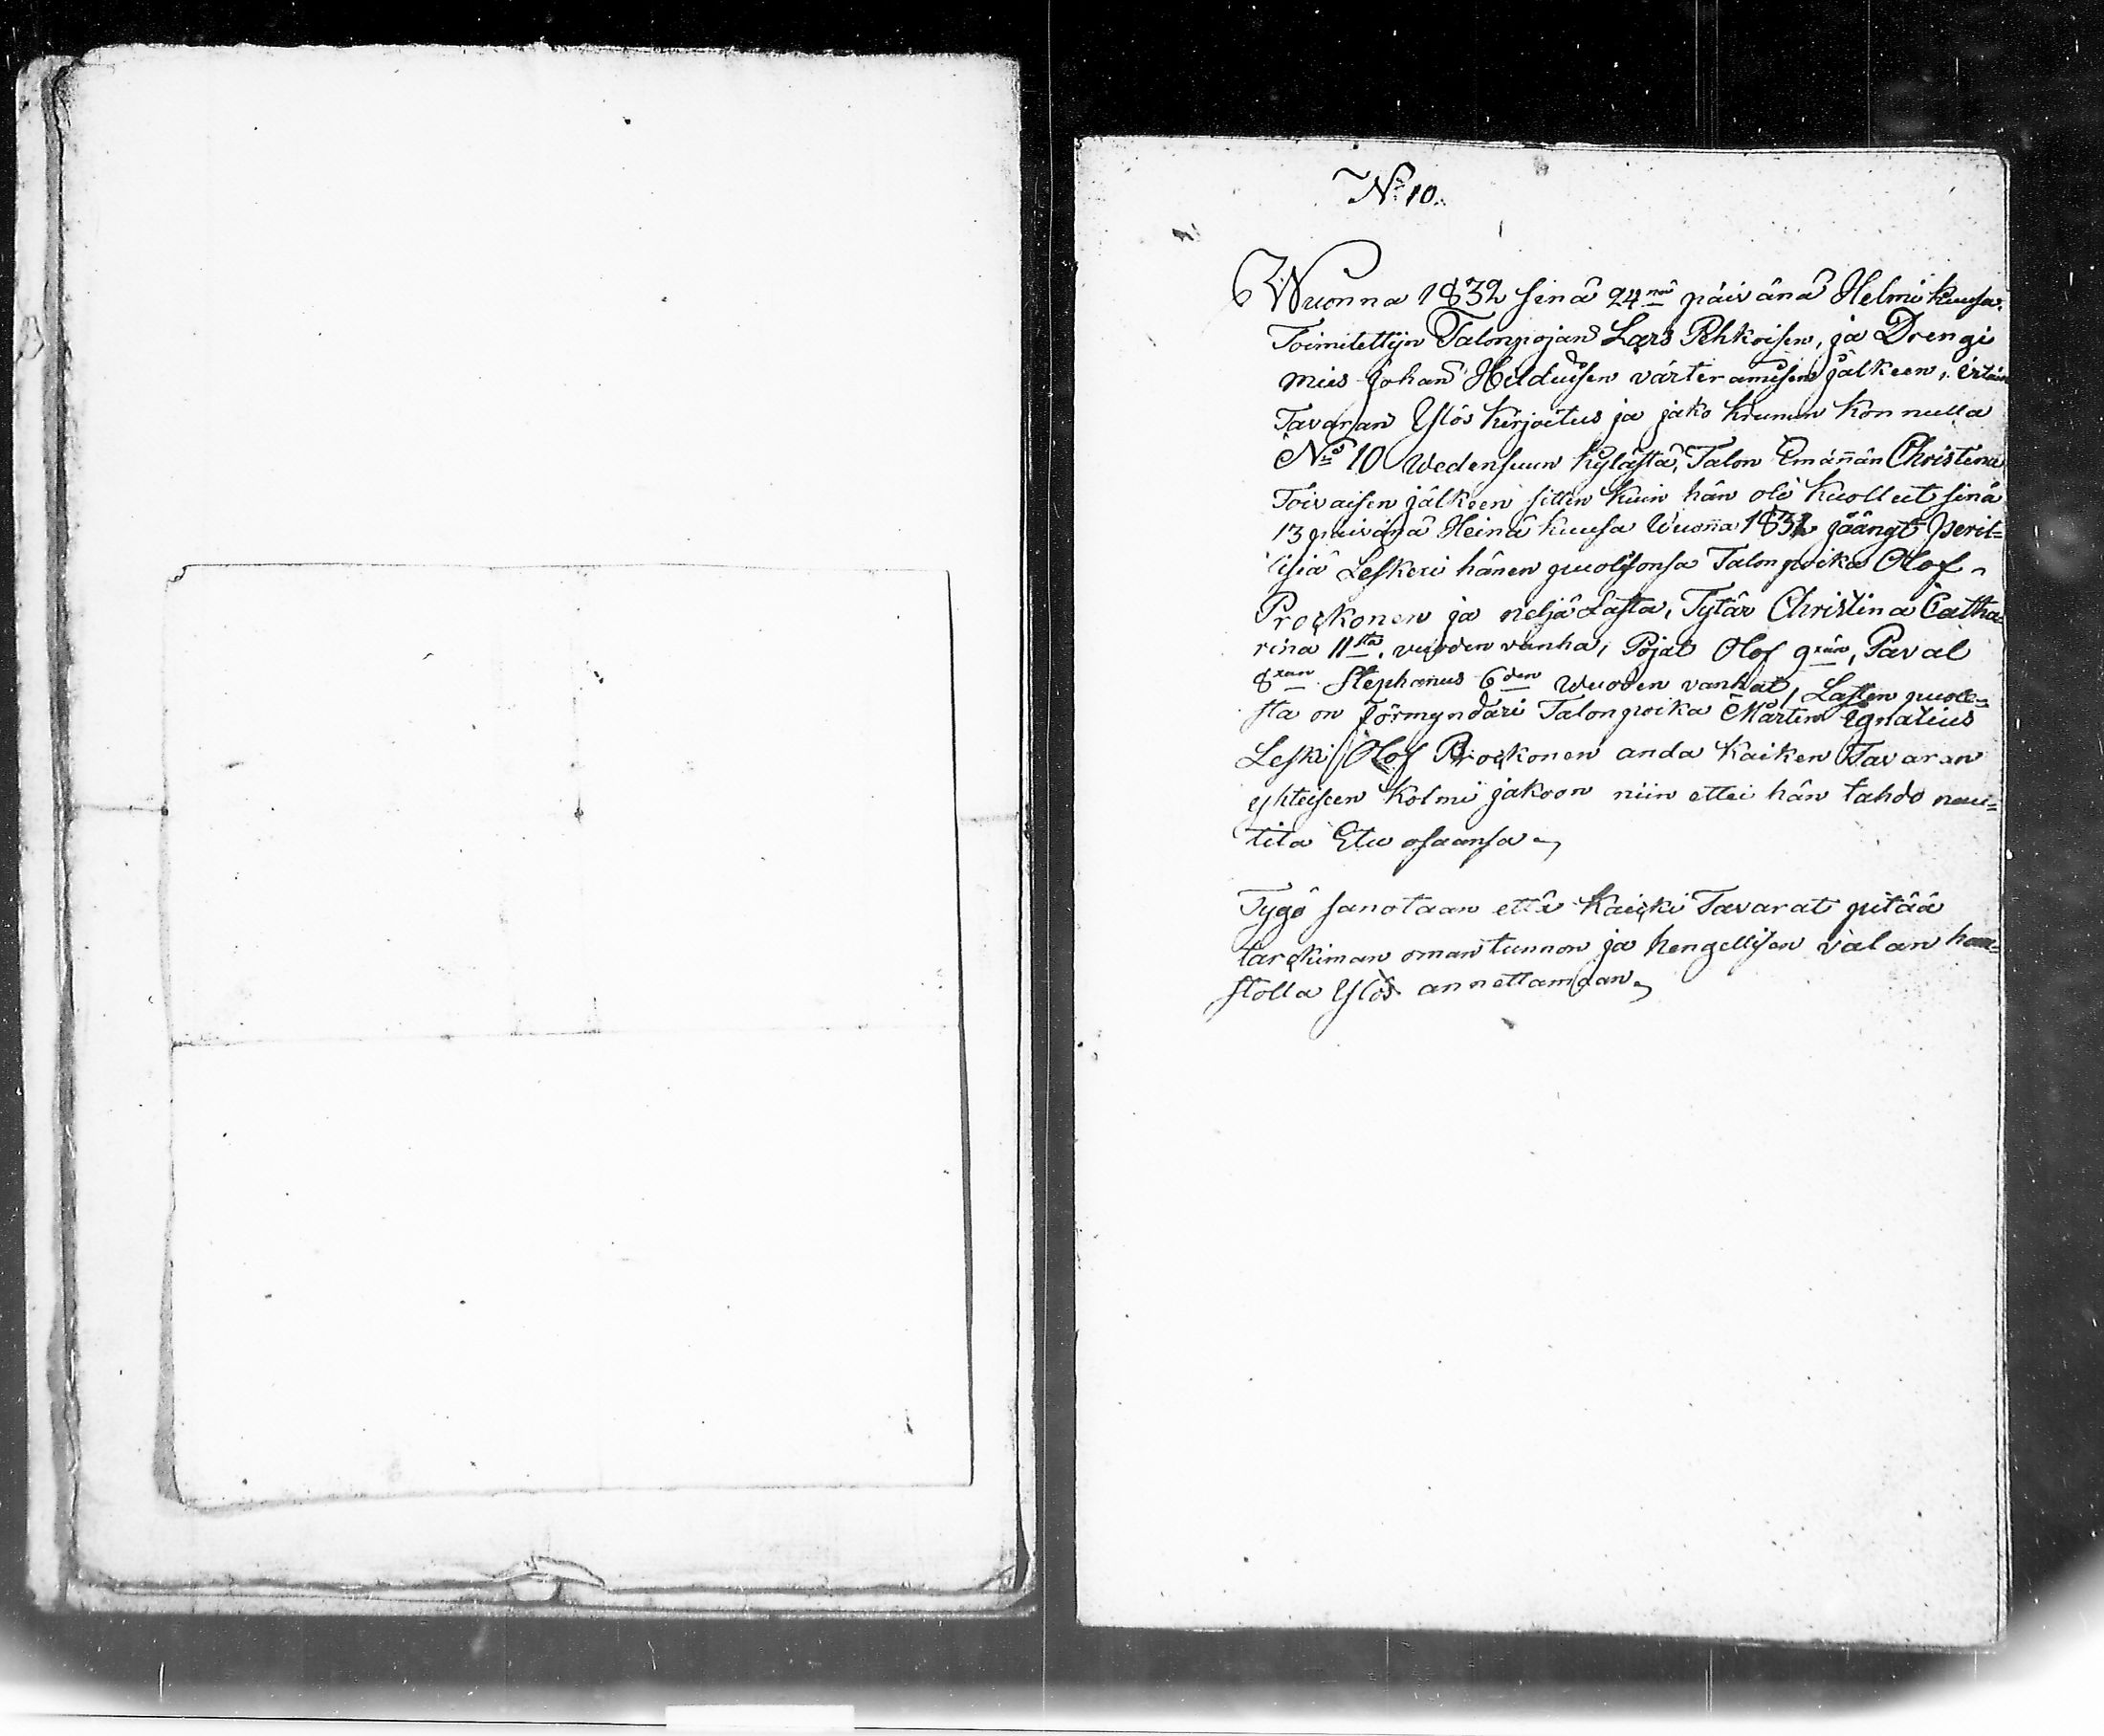 No 10.
Wuonna 1832 sinä 24nä päivänä Helmi kuusa
Toimitettijn Talonpojan Lars Pehkoisen, ja Drengi
mies Johan Hilduisen värteramisen jälkeen, irtain
Tavaran Ylös kirjoitus ja jako kruunun konnulla
No 10 Wedensuun kylästä, Talon Emäñän Christina
Toivaisen jälkeen sitten kuin hän oli kuollut sinä
13 päivänä Heinä kuusa Wuoña 1831 jäängt Peril=
lisiä Leskexi hänen puolisonsa Talonpoika Olof
Prockonen ja neljä Lasta, Tytär Christina Catha=
rina 11sta vuoden vanha, Pojat Olof 9xän, Paval
8xan Stephanus 6den wuoden vanhat, Lasten puole=
sta on Förmyndäri Talonpoika Mårten Ignatius
Leski Olof Prockonen anda kaiken Tavaran
yhteiseen kolmi jakoon niin ettei hän tahdo nau=
tita Etu osaansa
Tygö sanotaan että kaicki Tavarat pitää
tarckiman oman tunnon ja hengellisen valan haa=
stolla Ylös annettaman